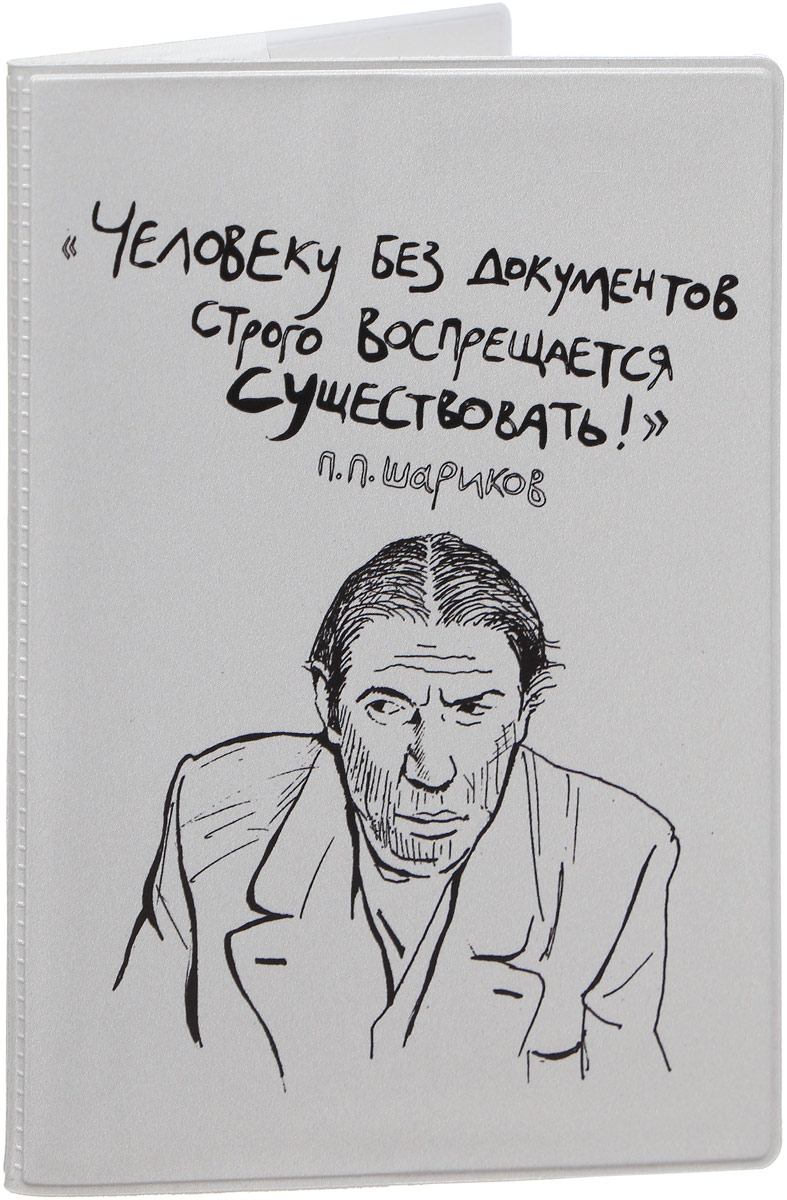 «Человеку без документов
строго воспрещается
существовать!»
П.П.Шариков